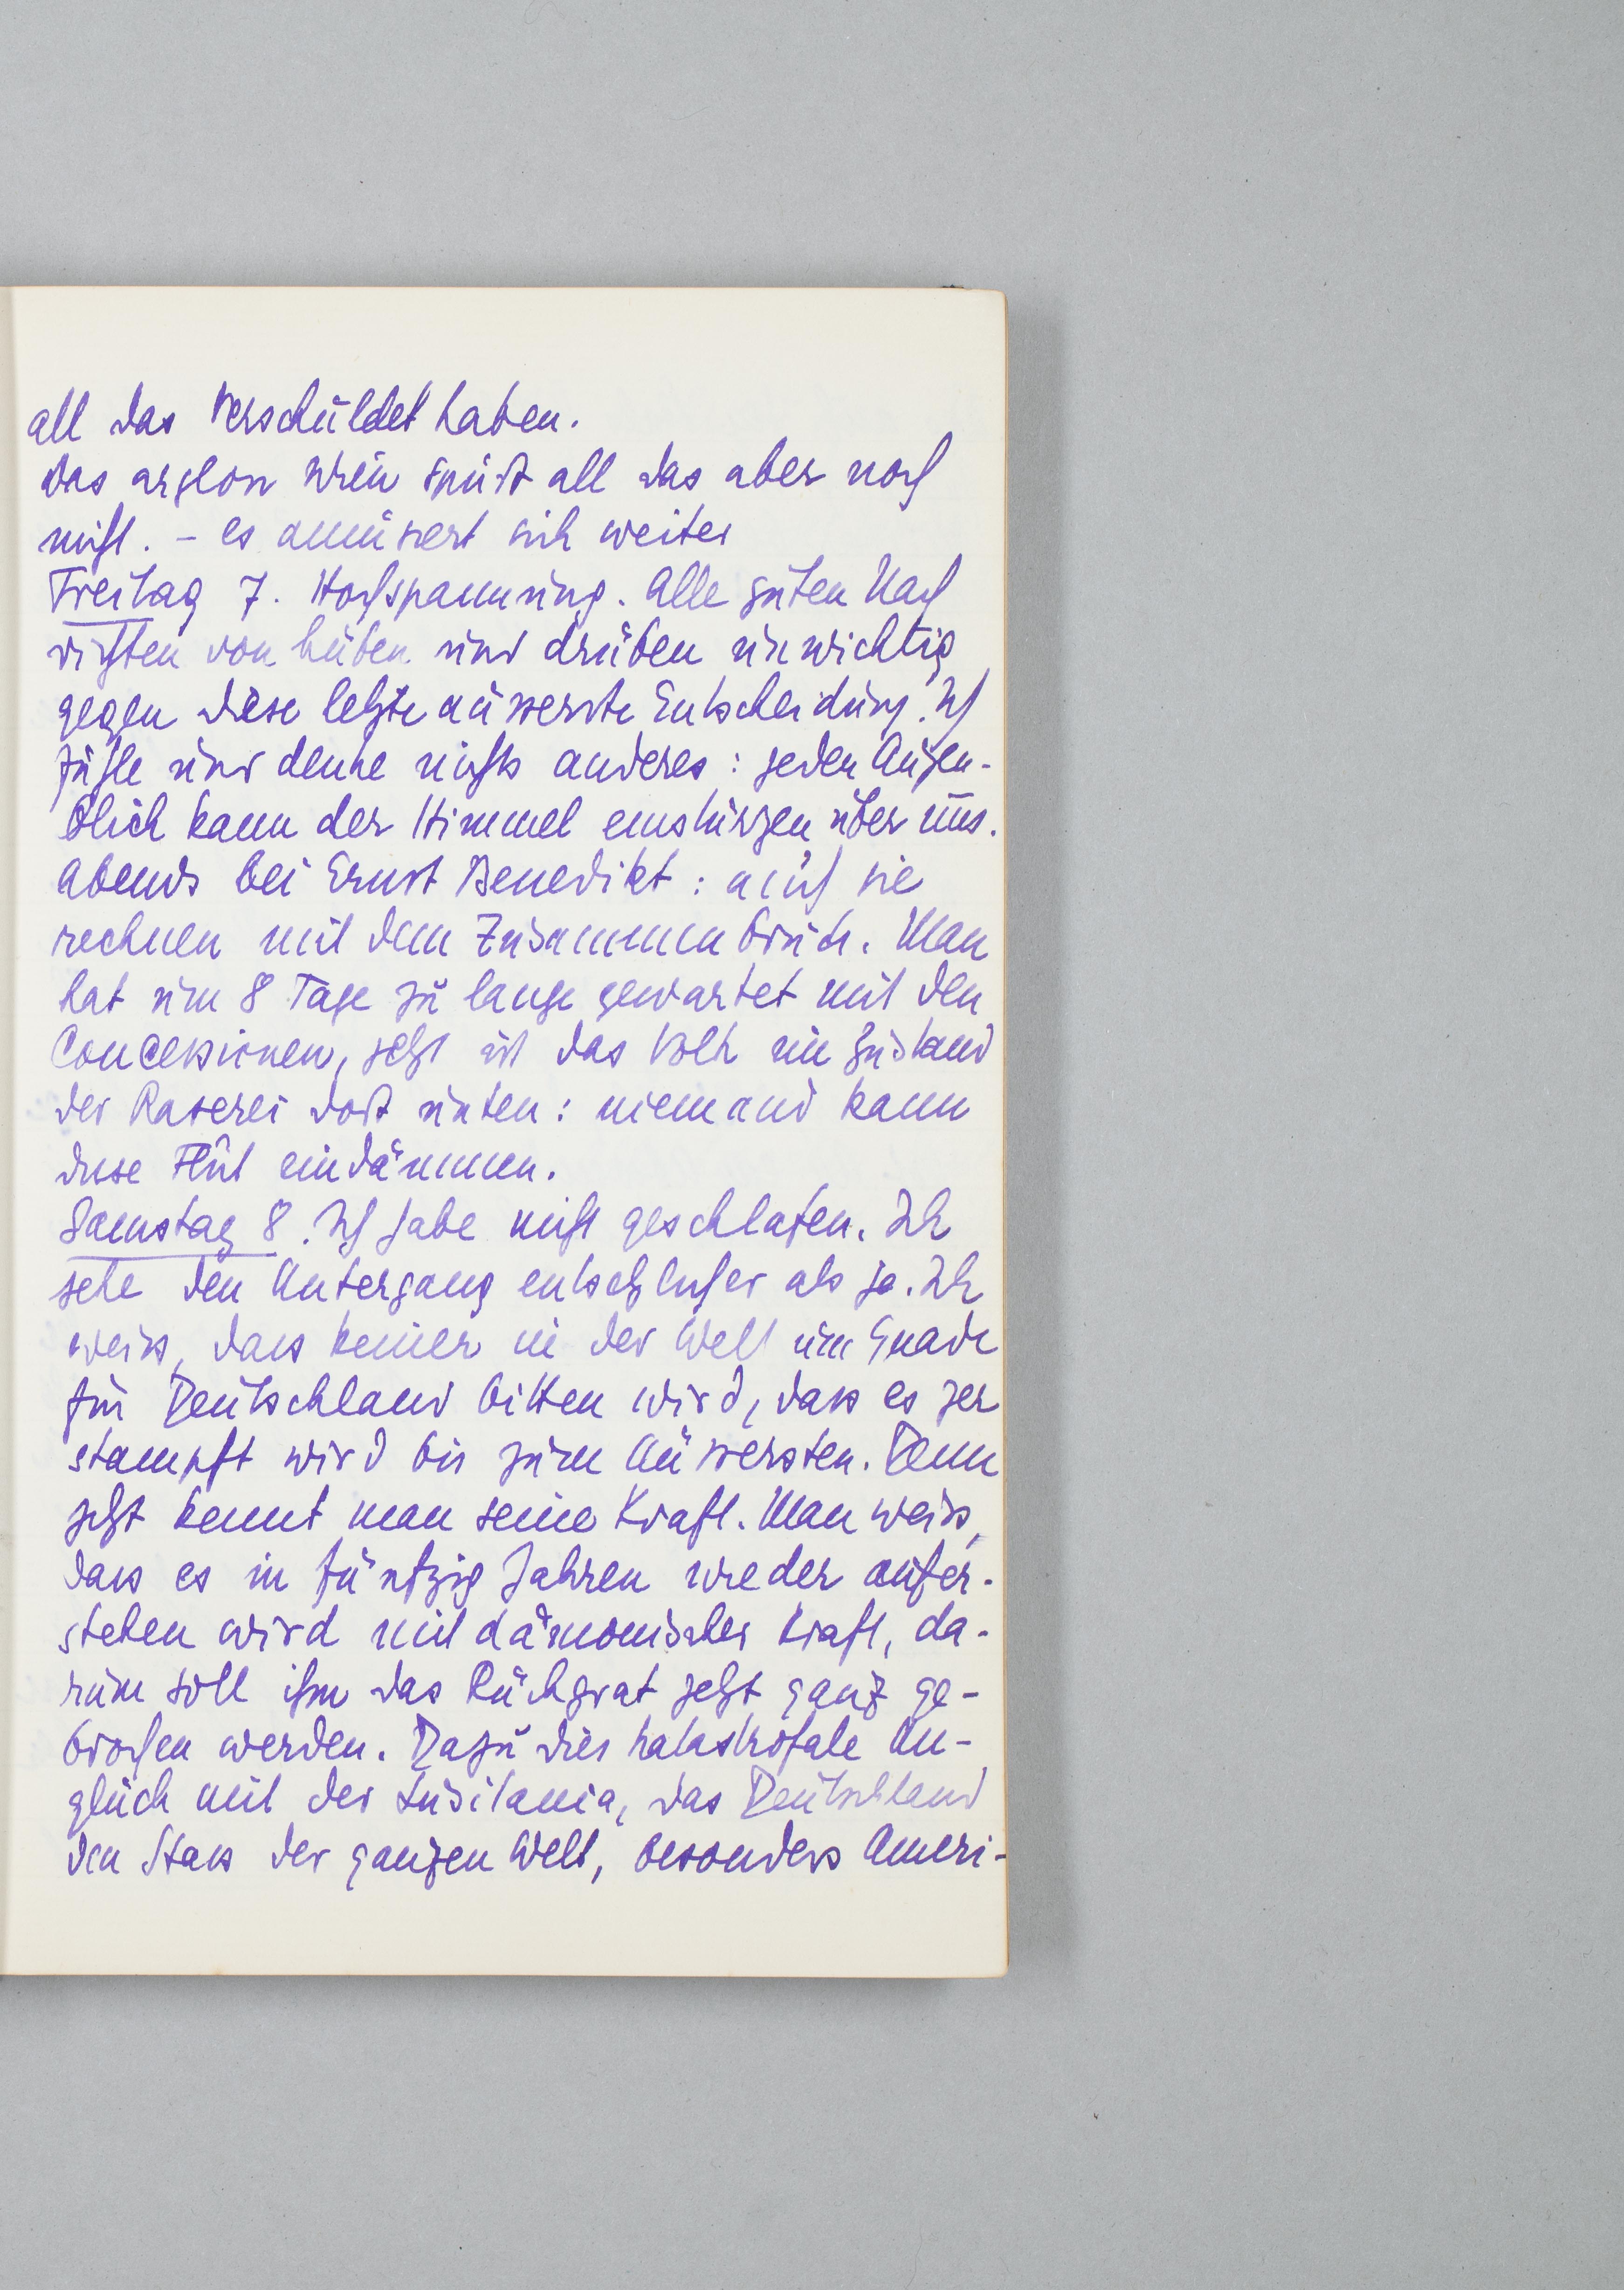 all das verschuldet haben.
das arglose Wien spürt all das aber noch
nicht. – es amüsiert sich weiter
Freitag 7. Hochspannung. Alle guten Nach
richten von hüben und drüben unwichtig
gegen diese letzte äusserste Entscheidung. Ich
fühle und denke nichts anderes: jeden Augen-
blick kann der Himmel einstürzen über uns.
Abends bei Ernst Benedikt: auch sie
rechnen mit dem Zusammenbruch. Man
hat um 8 Tage zu lange gewartet mit den
Concessionen, jetzt ist das Volk im Zustand
der Raserei dort unten: niemand kann
diese Flut eindämmen.
Samstag 8. Ich habe nicht geschlafen. Ich
sehe den Untergang entsetzlicher als je. Ich
weiss, dass keiner in der Welt um Gnade
für Deutschland bitten wird, dass es zer
stampft wird bis zum Äussersten. Denn
jetzt kennt man seine Kraft. Man weiss,
dass es in fünfzig Jahren wieder aufer-
stehen wird mit dämonischer Kraft, da-
rum soll ihm das Rückgrat jetzt ganz ge-
brochen werden. Dazu dies katastrofale Un-
glück mit der Lusitania, das Deutschland
den Hass der ganzen Welt, besonders Ameri-